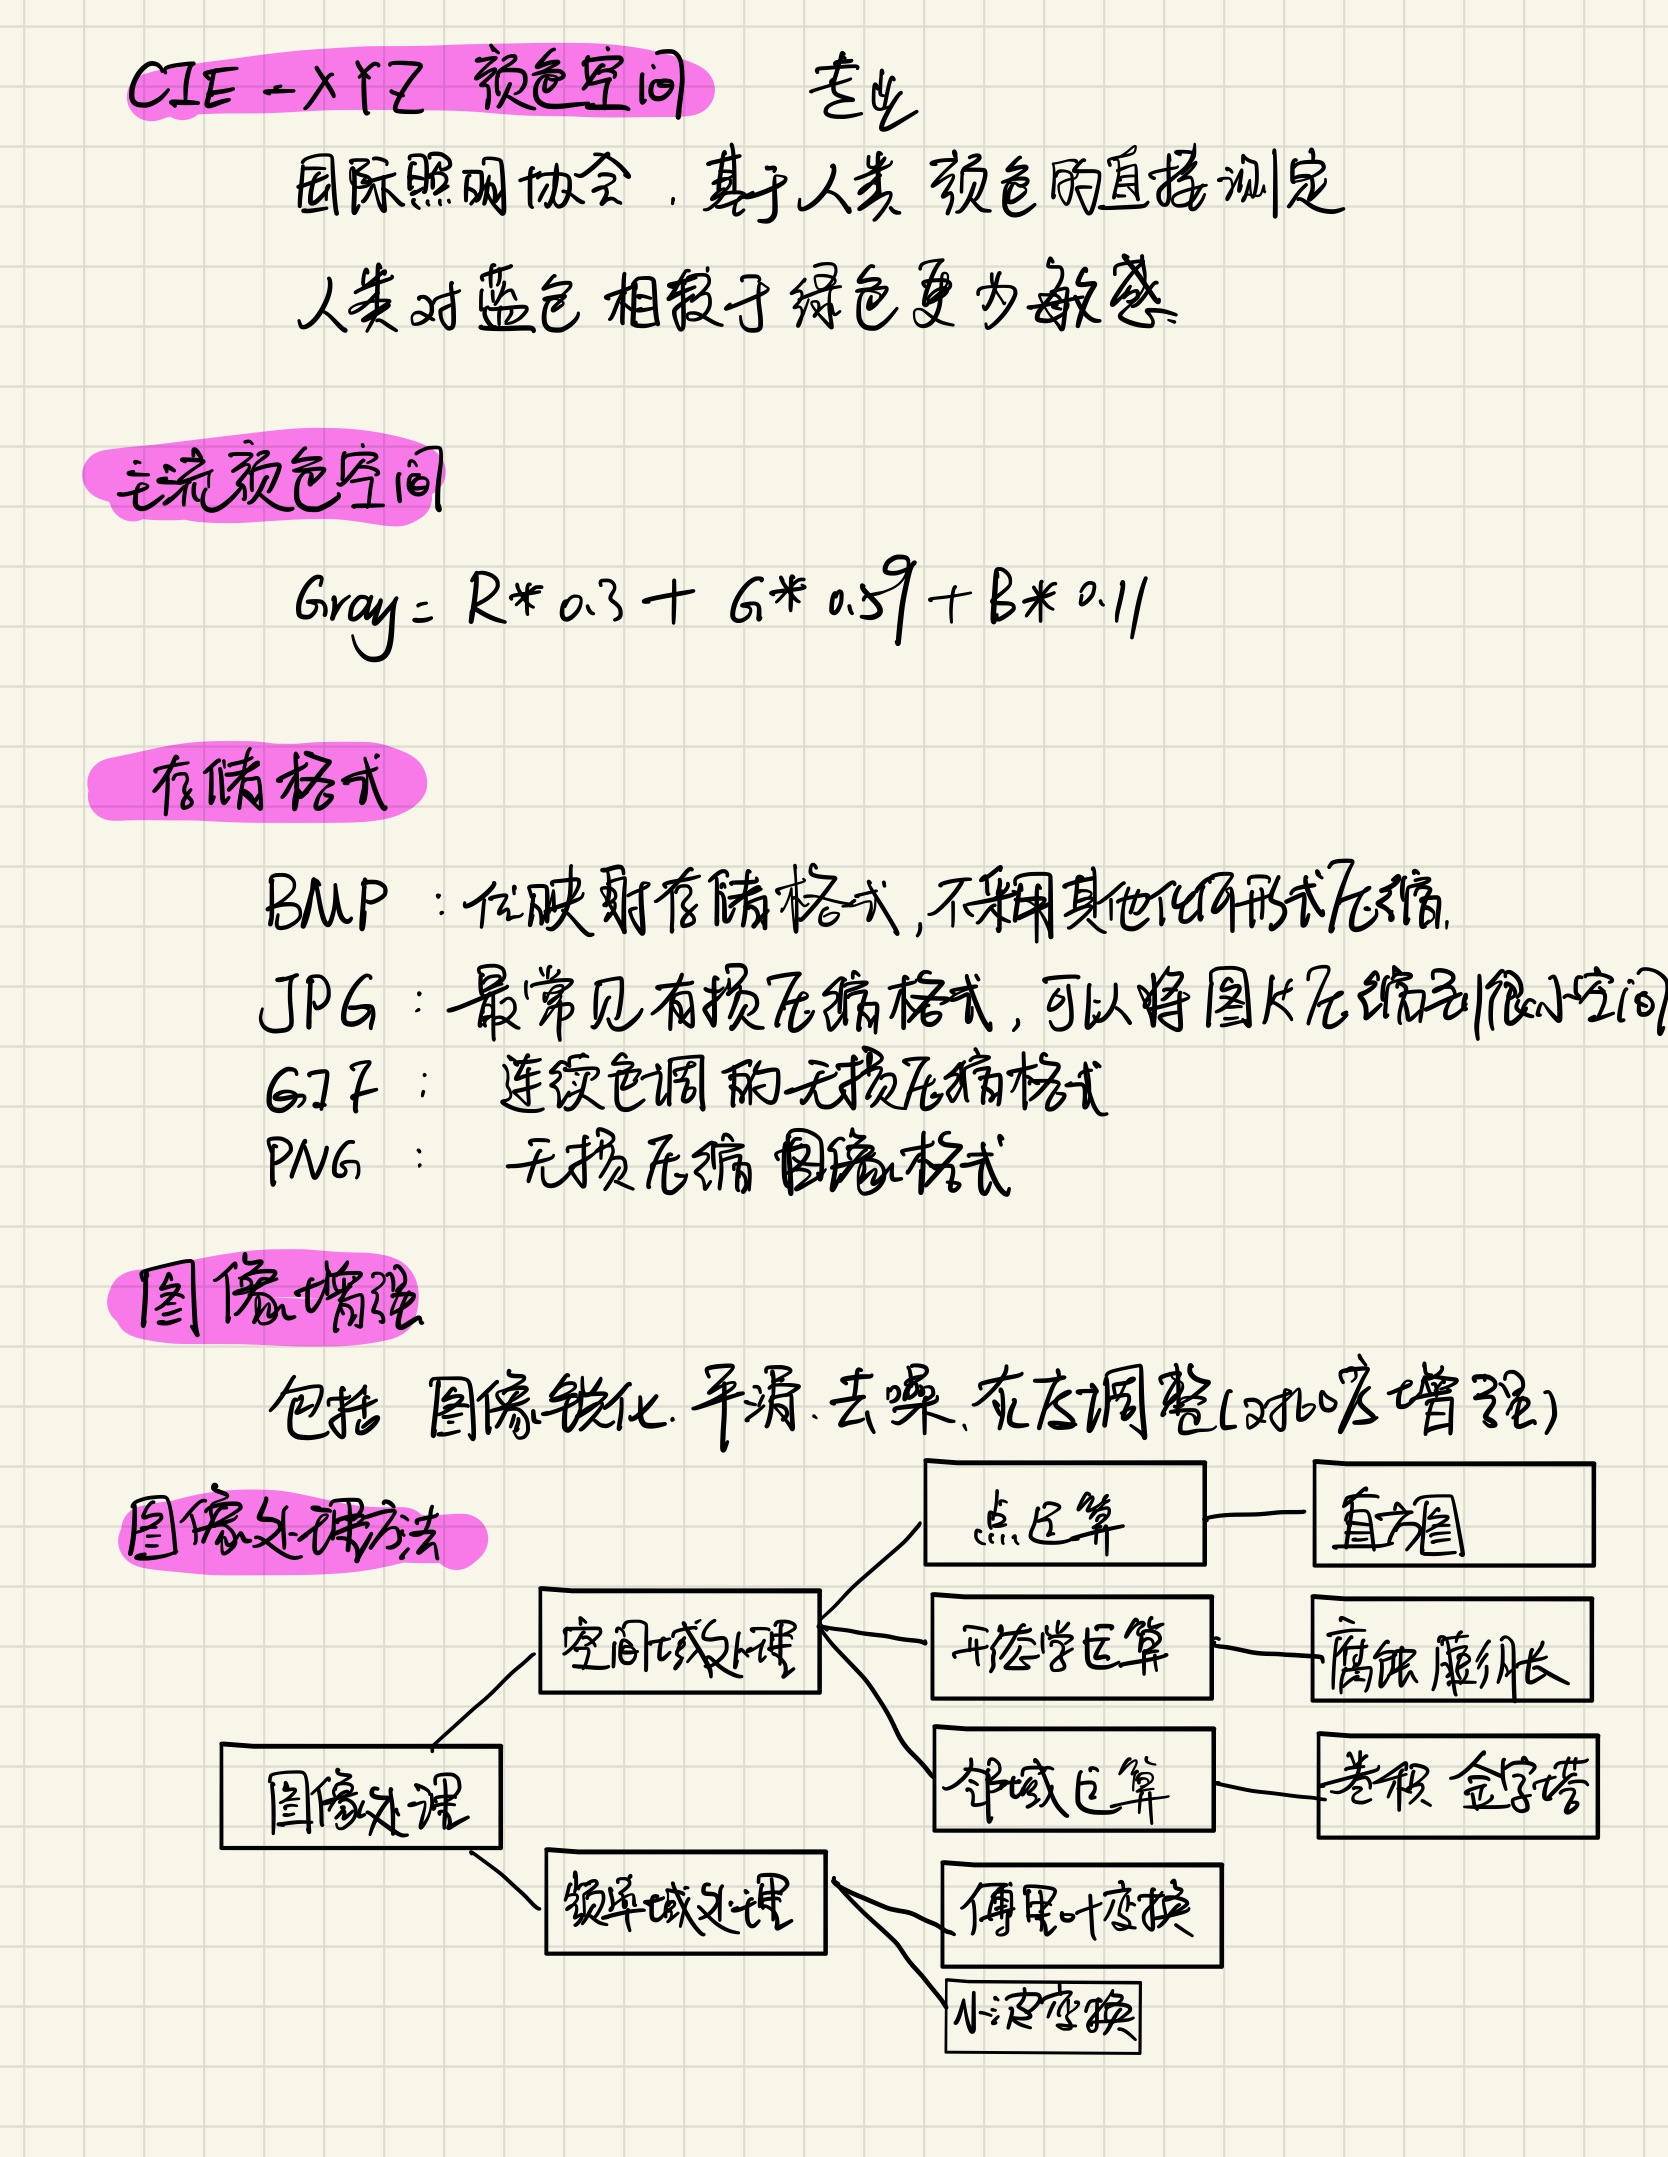 CIE-XYZ 颜色空间 专业
国际照明协会,基于人类颜色的直接测定
人类对蓝色相较于绿色更为敏感
主流颜色空间
Gray= R*0.3+ G*0.59+B*0.11
存储格式
BMP : 位映射存储格式,不采用其他任何形式压缩.
JPG : 最常见有损压缩格式,可以将图片压缩到很小空间
GIF : 连续色调的无损压缩格式
PNG : 无损压缩图像格式
图像增强
包括 图像锐化.平滑.去噪.灰度调整(对比度增强)
图像处理方法
点运算
直方图
空间域处理
形态学运算
腐蚀膨胀
图像处理
邻域运算
卷积 金字塔
频率域处理
傅里叶变换
小波变换